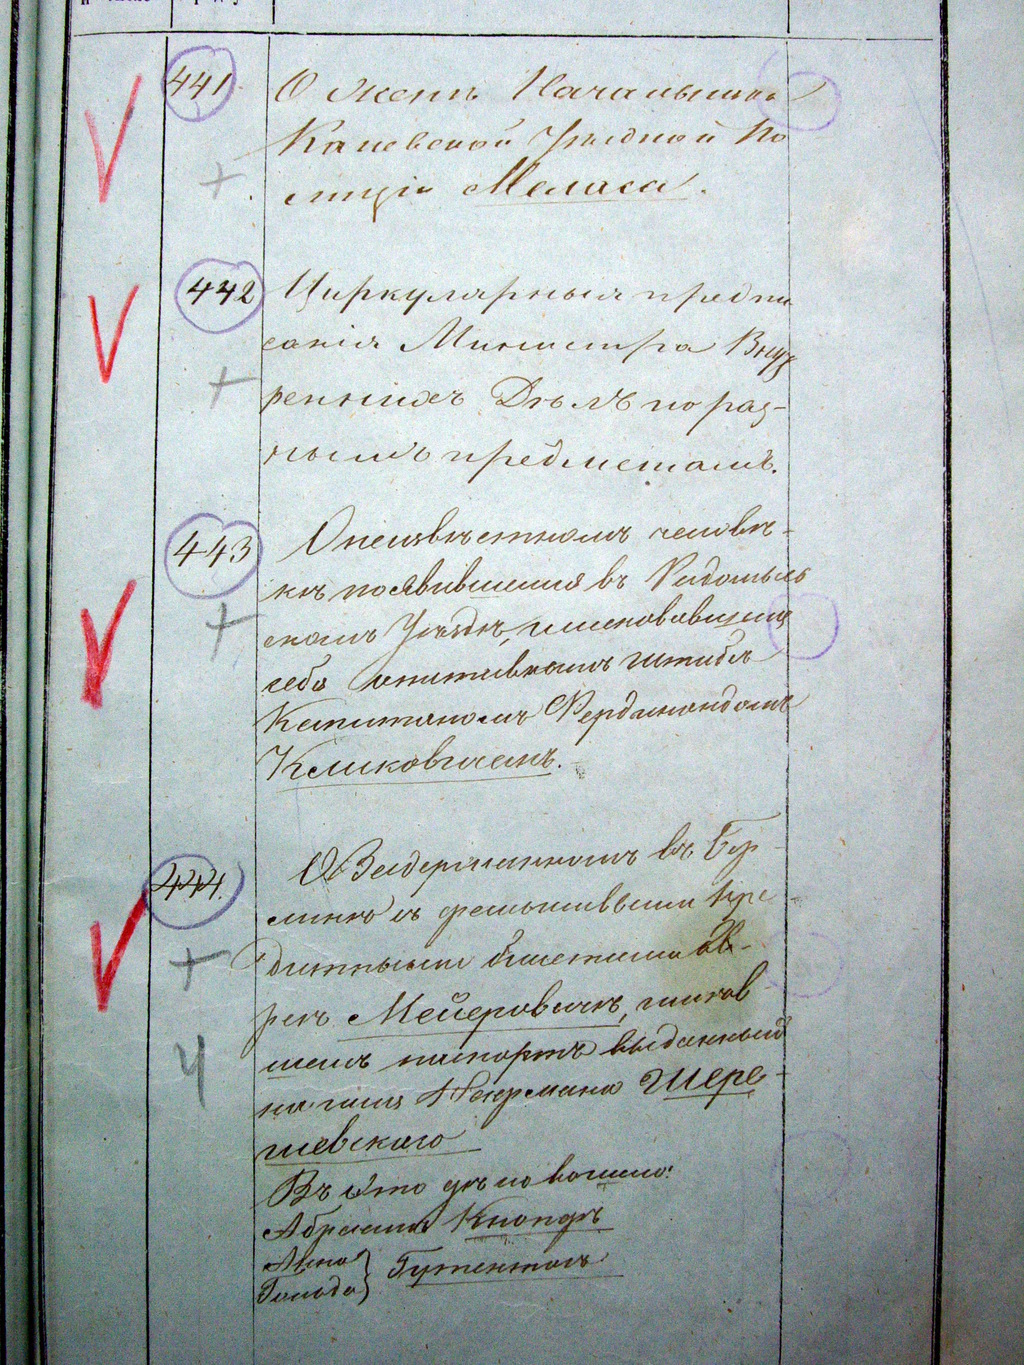 441
О женѣ Начальника
Каневской Уѣздной По
лиціи Меласа.
442
Циркулярныя предпи
санія Министра Внут
реннихъ Дѣлъ по раз-
нымъ предметамъ.
443
О неизвѣстномъ человѣ-
кѣ появившемся въ Радомысль
скомъ Уѣздѣ, именовавшемъ
себя отставнымъ штабсъ
Капитаномъ Фердинандомъ
Климовичемъ.
444.
О Задержанномъ въ Бер-
линѣ съ фальшивыми кре-
дитными билетами
Мейеровичѣ, имѣв
шемъ паспортъ выданный
на имя Германа Шере-
шевскаго
Въ это дѣло вошли:
Абрамъ Кнопфъ
Анна
Голда } Гутенталь